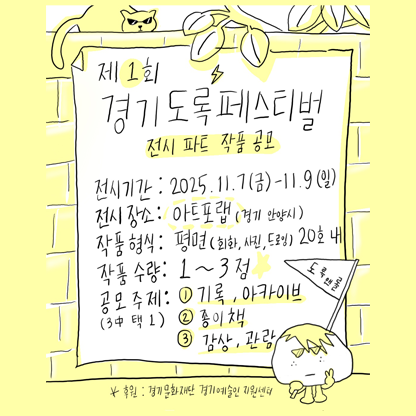 제 1회
경기 도록 페스티벌
전시 파트 작품 공모
전시기간 : 2025.11.7(금) - 11.9(일)
전시장소 : 아트포랩 (경기 안양시)
작품형식 : 평면(회화, 사진, 드로잉) 20호 내
작품 수량 : 1~3점
공모 주제 : ① 기록, 아카이브
(3中 택 1) ② 종이책
③ 감상, 관람
* 후원 : 경기문화재단 경기예술인지원센터